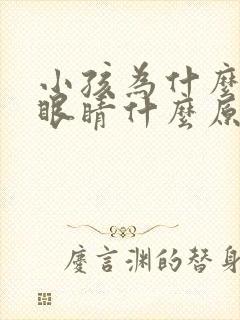 小孩為什麼
眼睛什麼原
慶言渊的替身